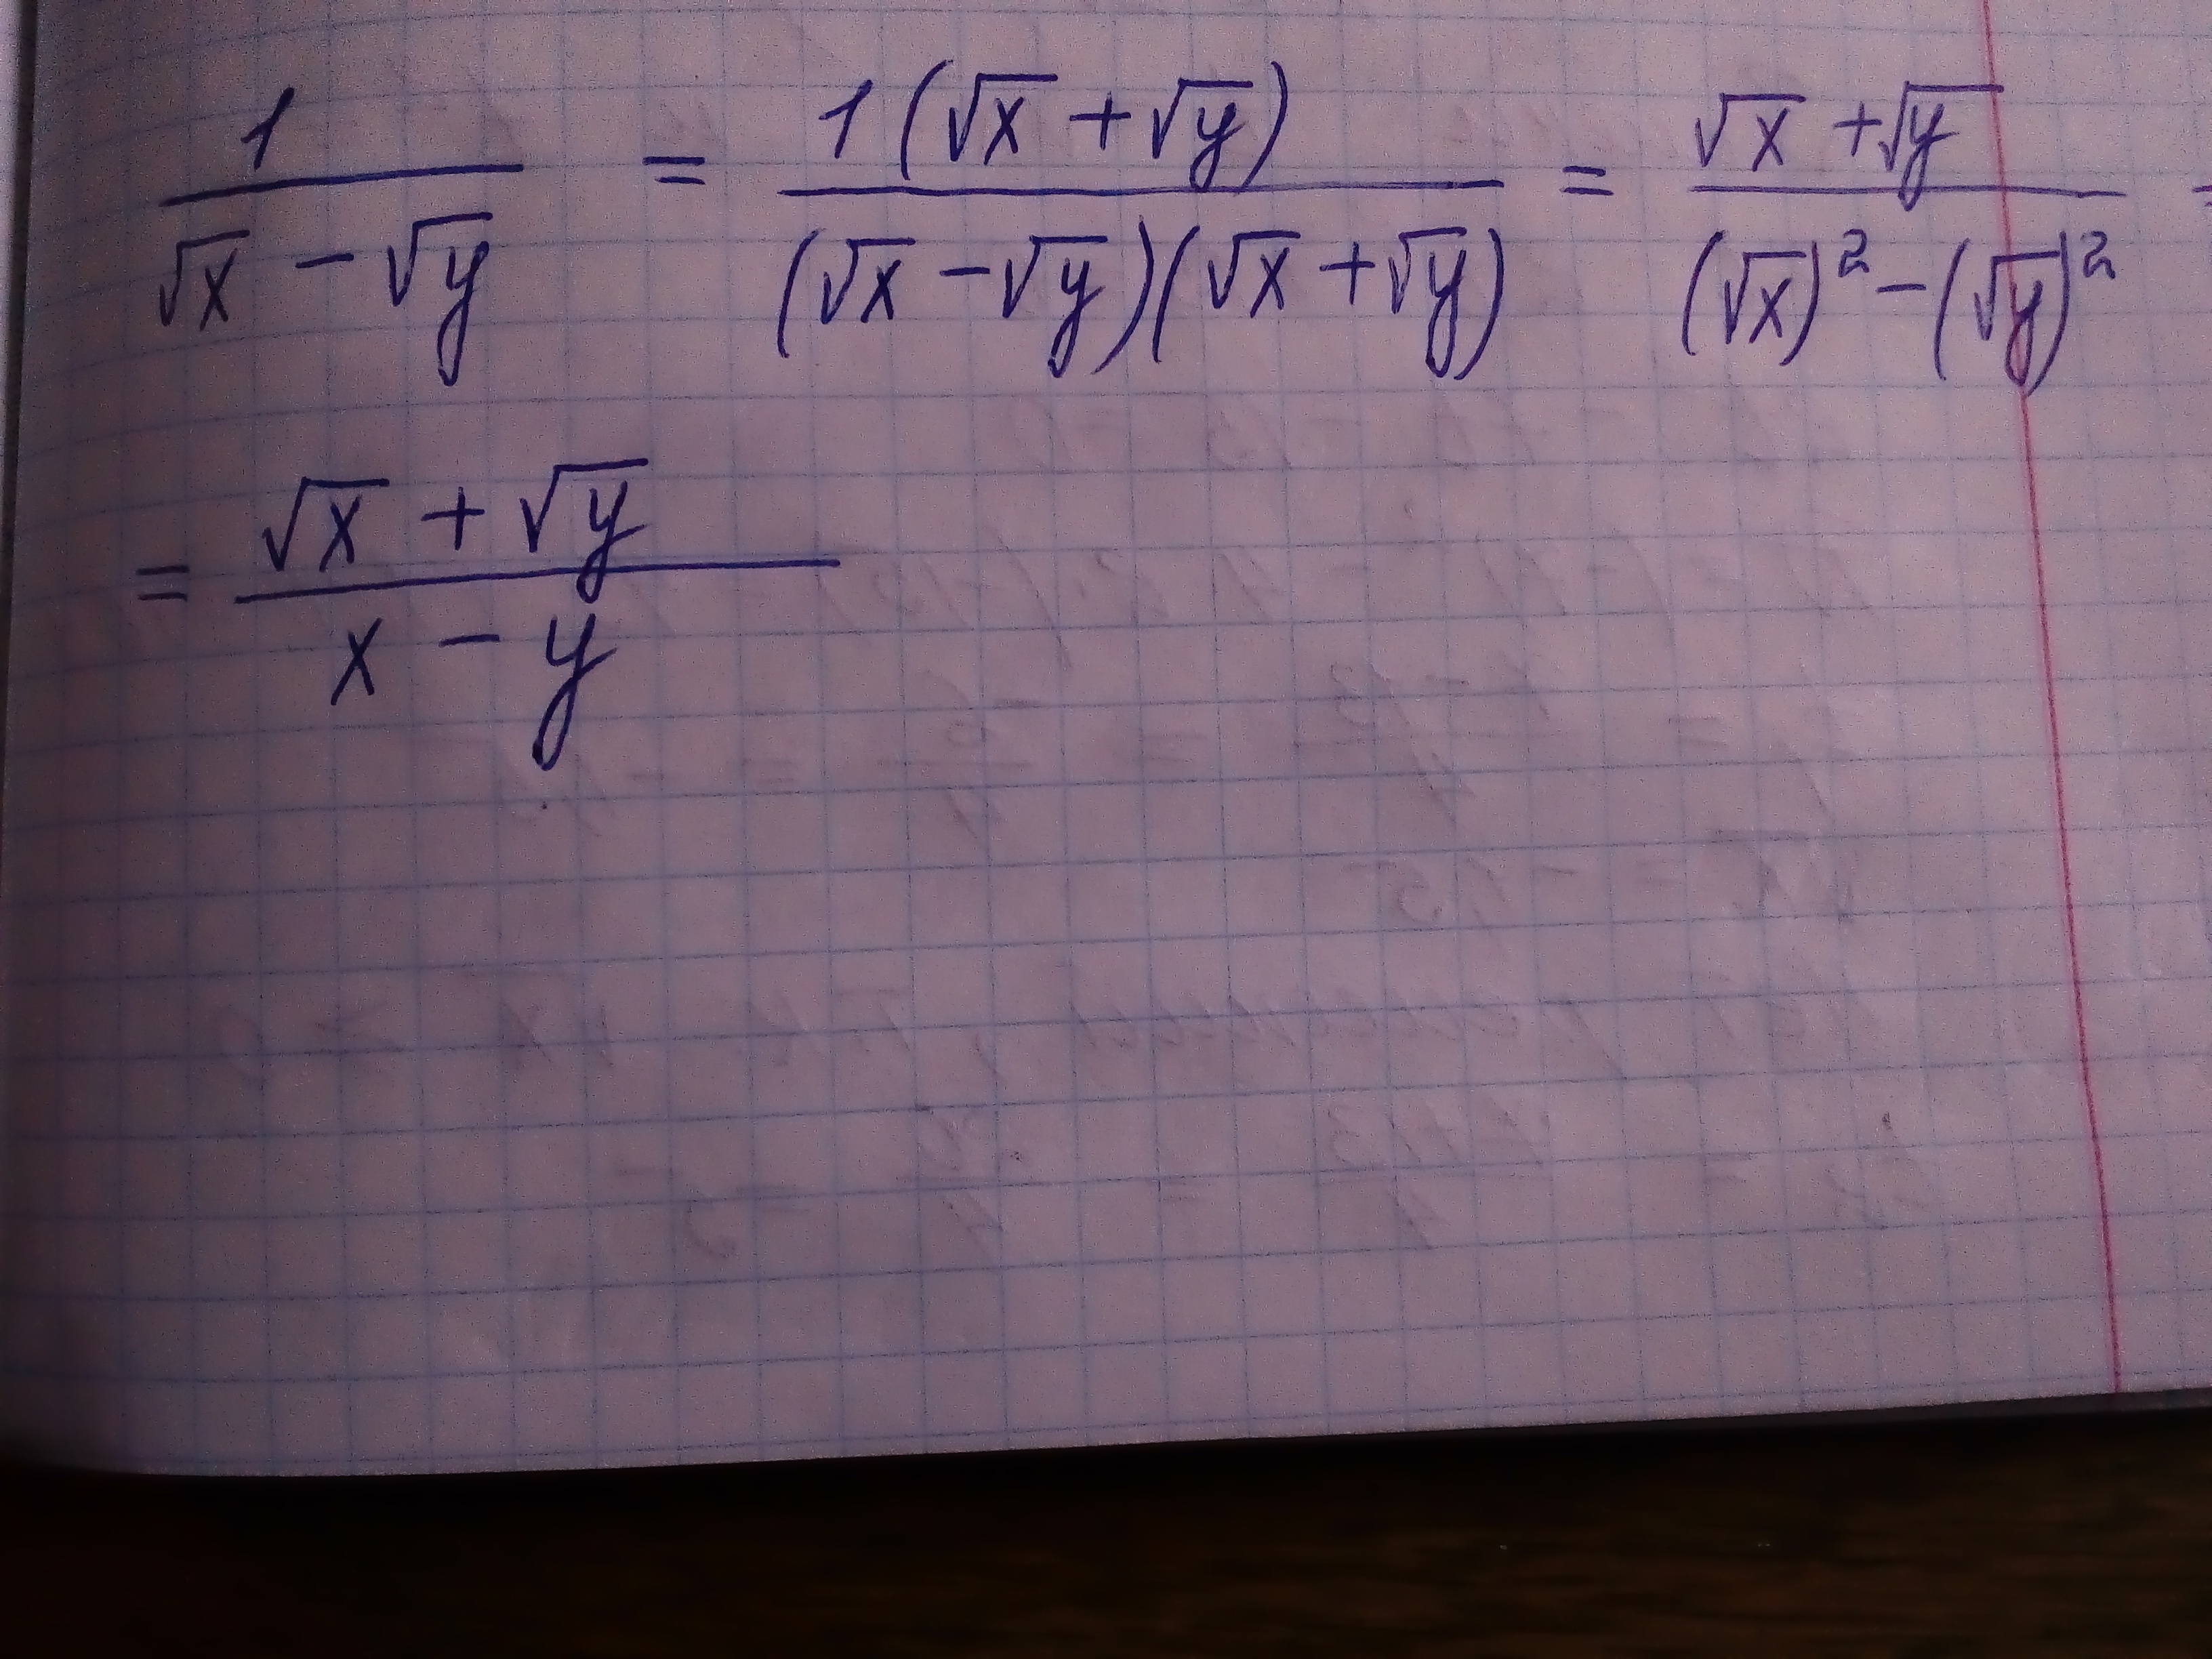 1/(√x - √y) = 1(√x + √y)/((√x - √y)(√x + √y)) = (√x + √y)/((√x)² - (√y)²) =
= (√x + √y)/(x - y)